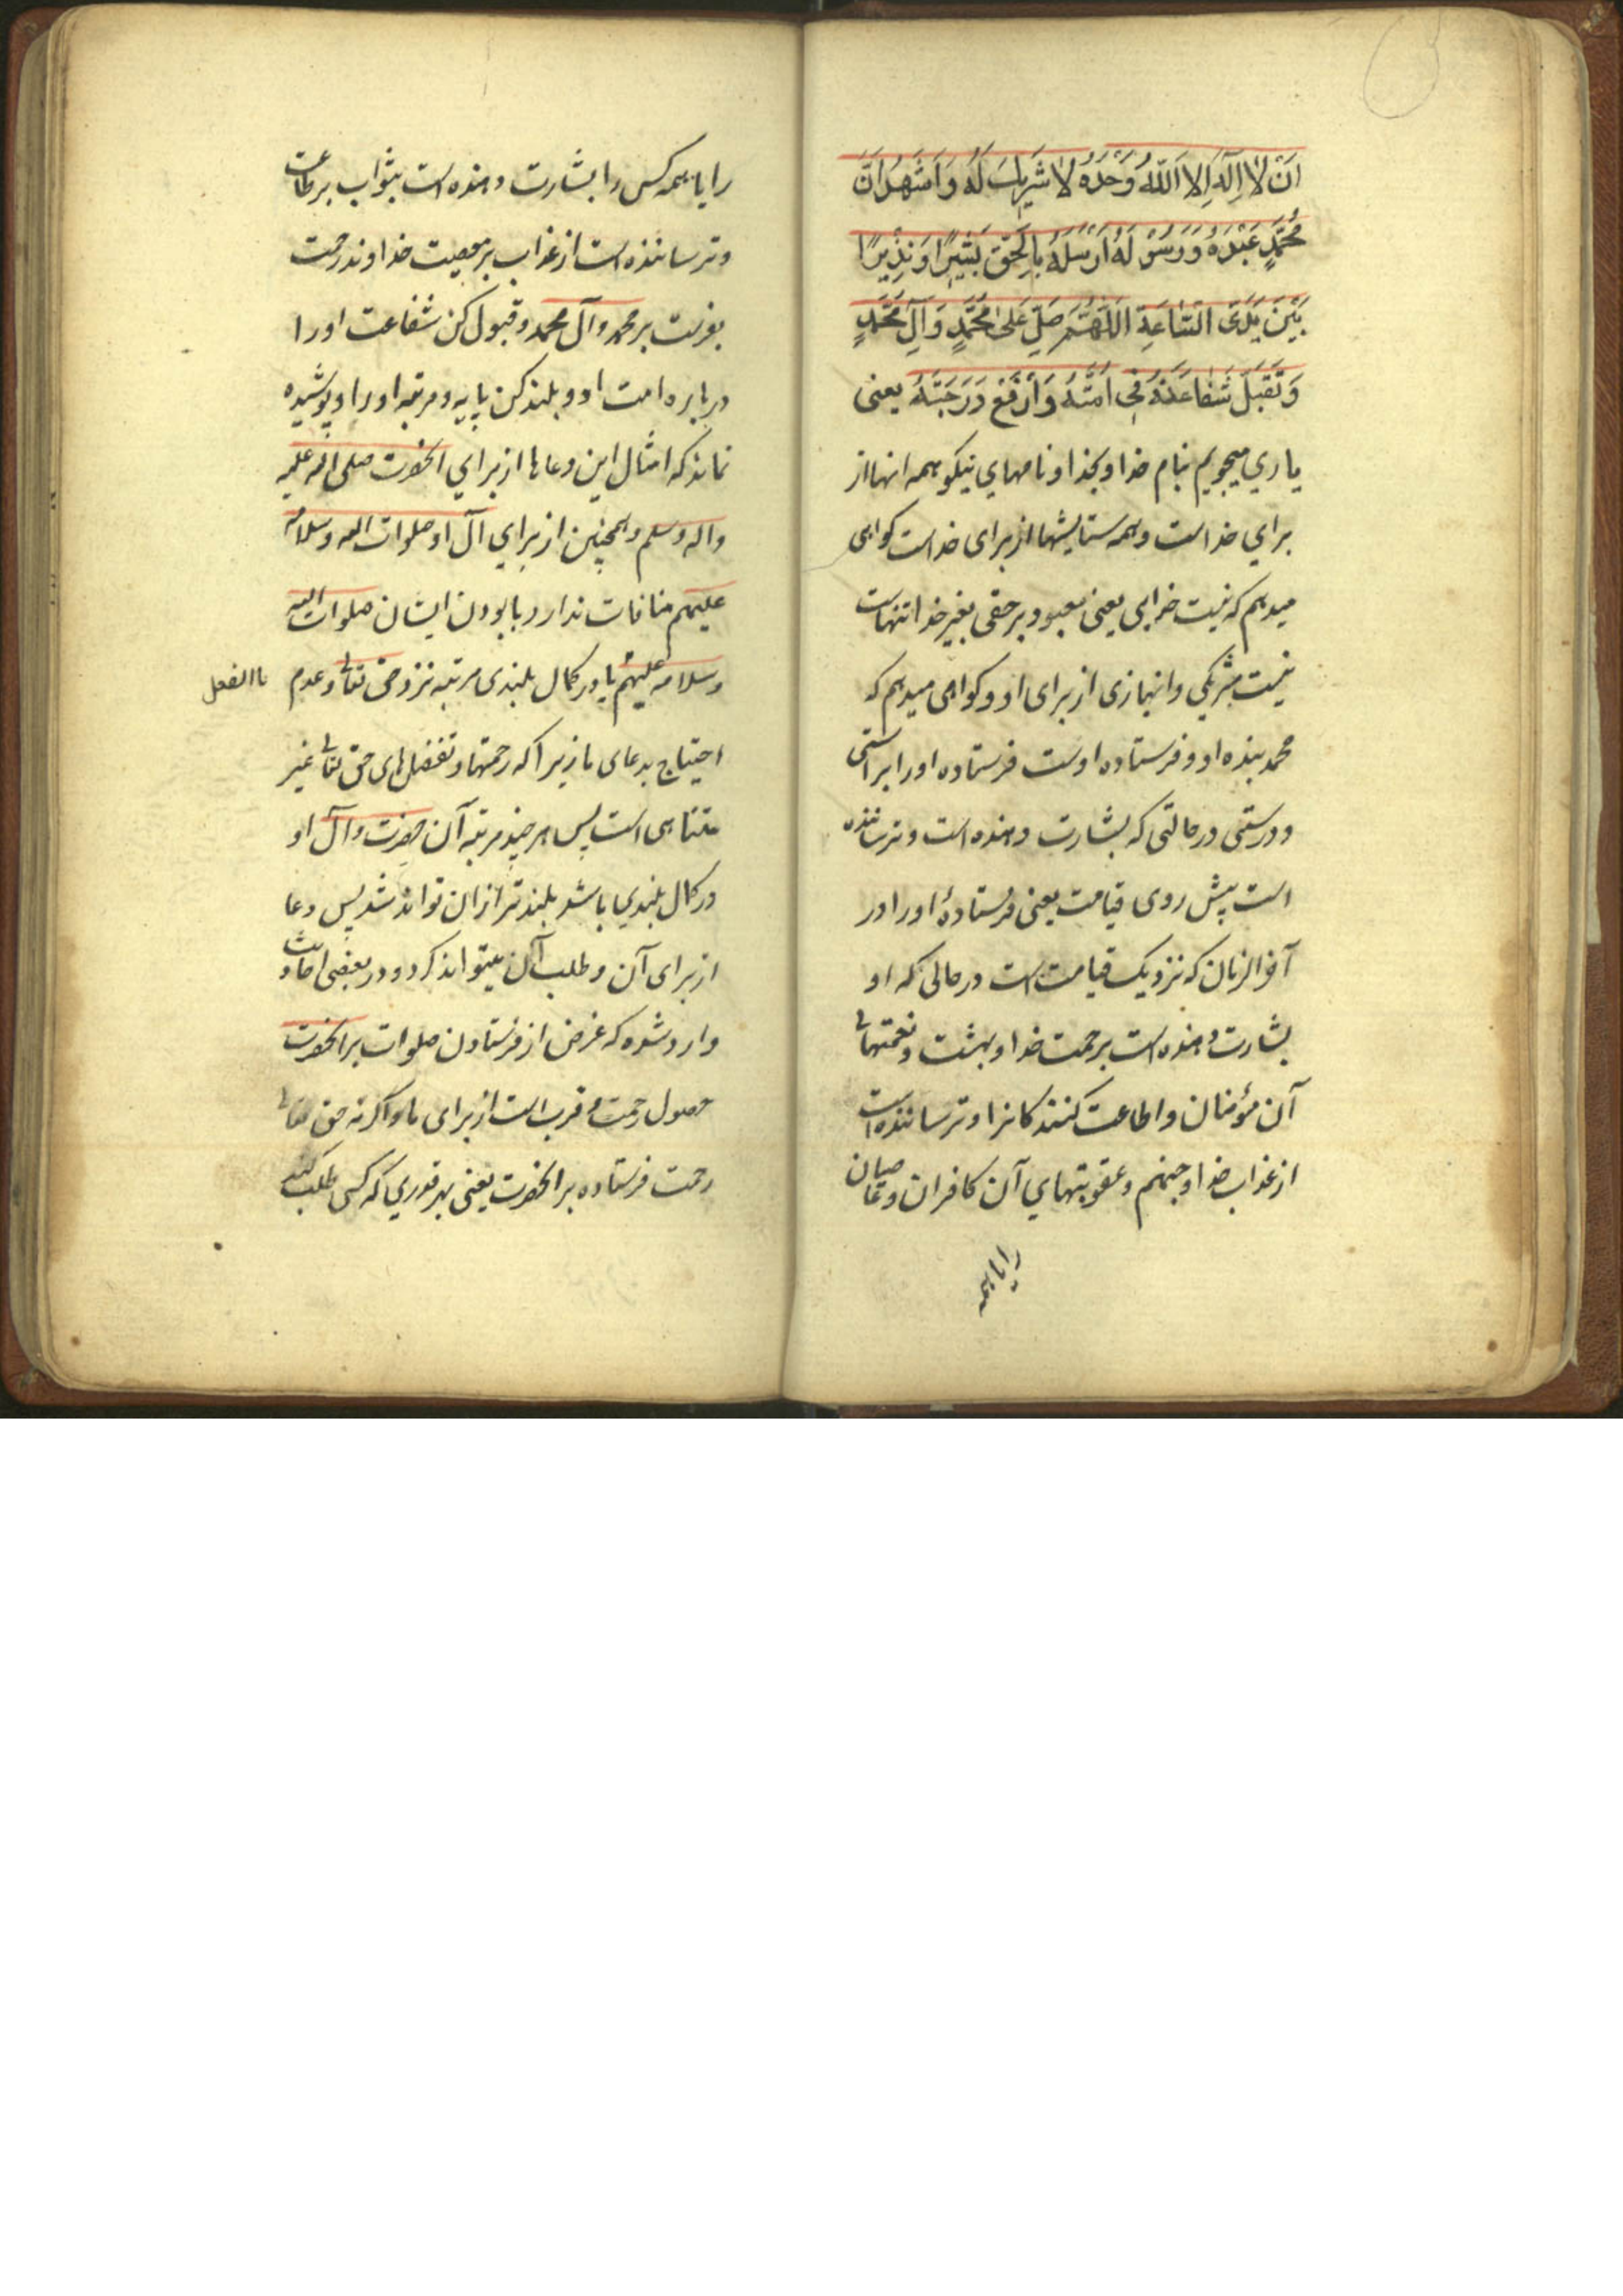 اَنْ لا اِلٰهَ اِلَّا اللّٰهُ وَحْدَهُ لا شَرِیكَ لَهُ وَ اَشْهَدُ اَنَّ
مُحَمَّدٍ عَبْدَهُ وَ رَسُوْلَهُ اَرْسَلَهُ بِالْحَقِّ بَشیرًا وَ نَذِیْرًا
بَیْنَ یَدَیِ السّاعَةِ اللّٰهُمَّ صَلِّ عَلیٰ مُحَمَّدٍ وَ آلِ مُحَمَّدٍ
وَ تَقَبَّلْ شَفاعَتَهُ فی اُمَّتِهُ وَ ارْفَعْ دَرَجَتَهُ یعنی
یاری میجویم بنام خدا و بخدا و نامهای نیکو همه انها از
برای خداست و همه ستایشها از برای خداست کواهی
میدهم که نیست خدایی یعنی معبود برحقی بغیر خدا تنهاست
نیست شریکی و انبازی از برای او و کواهی میدهم که
محمد بنده او و فرستاده اوست فرستاده اورا براستی
و درستی در حالتی که بشارت دهنده است و ترساننده
است پیش روی قیامت یعنی فرستادهٔ اورا در
آخر الزمان که نزدیک قیامت است در حالی که او
بشارت دهنده است برحمت خدا و بهشت و نعمتهای
آن مؤمنان و اطاعت کنندکانرا و ترساننده است
از عذاب خدا و جهنم و عقوبتهای آن کافران و عاصیان
را یا همه
را یا همه کس را بشارت دهنده است بثواب بر طاعت
و ترساننده است از عذاب بر معصیت خداوندا رحمت
بفرست بر محمد و آل محمد و قبول کن شفاعت اورا
در باره امت او و بلند کن پایه و مرتبه اورا و پوشیده
نماند که امثال این دعاها از برای انحضرت صلی الله علیه
واله وسلم و همچنین از برای آل او صلوات الله وسلامه
علیهم منافات ندارد با بودن ایشان صلوات الله
وسلامه علیهم با در کمال بلندی مرتبه نزد حق تعالی و عدم
باالفعل
احتیاج بدعای ما زیرا که رحمتها و تفضل های حق تعالی غیر
متناهی است پس هر چند مرتبه آن حضرت و آل او
در کمال بلندی باشد بلند تر از ان تواند شد پس دعا
از برای آن و طلب آن میتواند کرد و در بعضی احادیث
وارد شده که غرض از فرستادن صلوات بر انحضرت
حصول رحمت و قرب است از برای ما و اکرنه حق تعالی
رحمت فرستاده بر انحضرت یعنی بهر قدری که کسی طلب کند